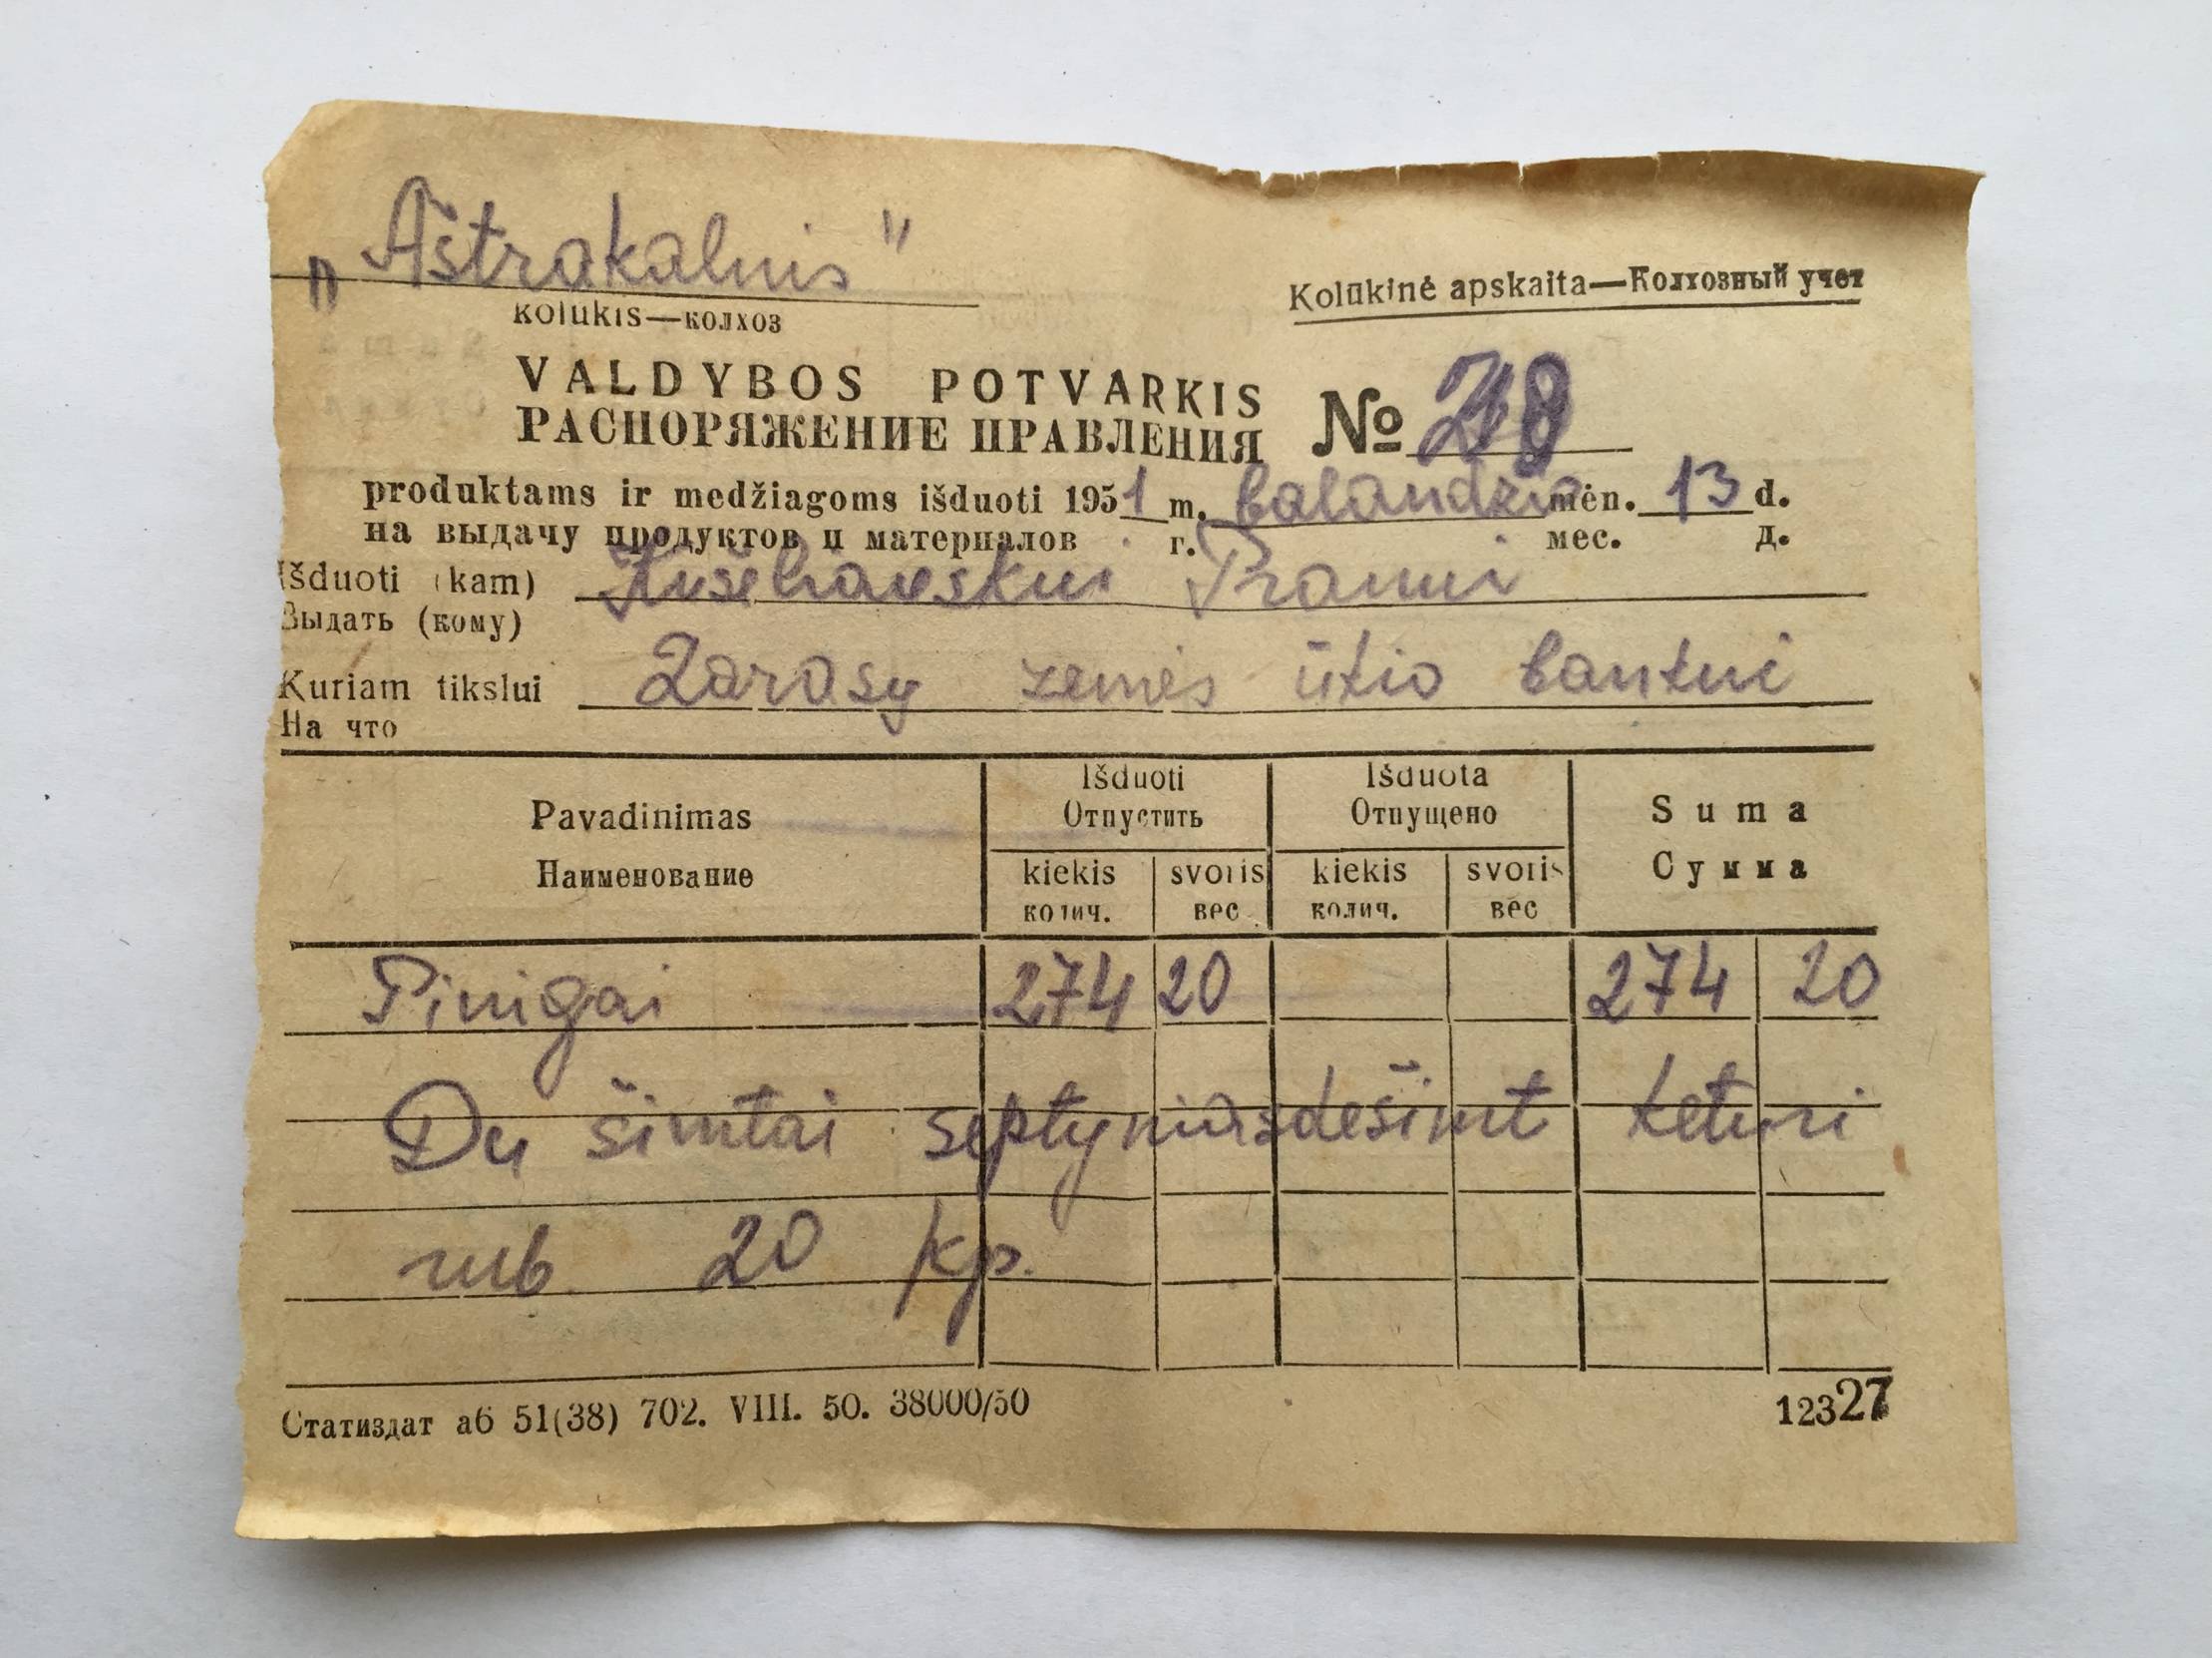 „Aštrakalnis"
kolūkis—колхоз
Kolūkinė apskaita—Колхозный учет
VALDYBOS POTVARKIS
РАСПОРЯЖЕНИЕ ПРАВЛЕНИЯ №
produktams ir medžiagoms išduoti 1951 m. balandžio mėn. 13 d.
на выдачу продуктов и материалов г. мес. д.
Išduoti (kam) Pranui
Выдать (кому)
Kuriam tikslui Zarasų žemės ūkio bankui
На что
Pavadinimas Išduoti Išduota Suma
Наименование Отпустить Отпущено Сумма
kiekis svoris kiekis svoris
колич. вес колич. вес
Pinigai 274 20 274 20
Du šimtai septyniasdešimt keturi
rub 20 kp.
Статиздат аб 51(38) 702. VIII. 50. 38000/50 12327